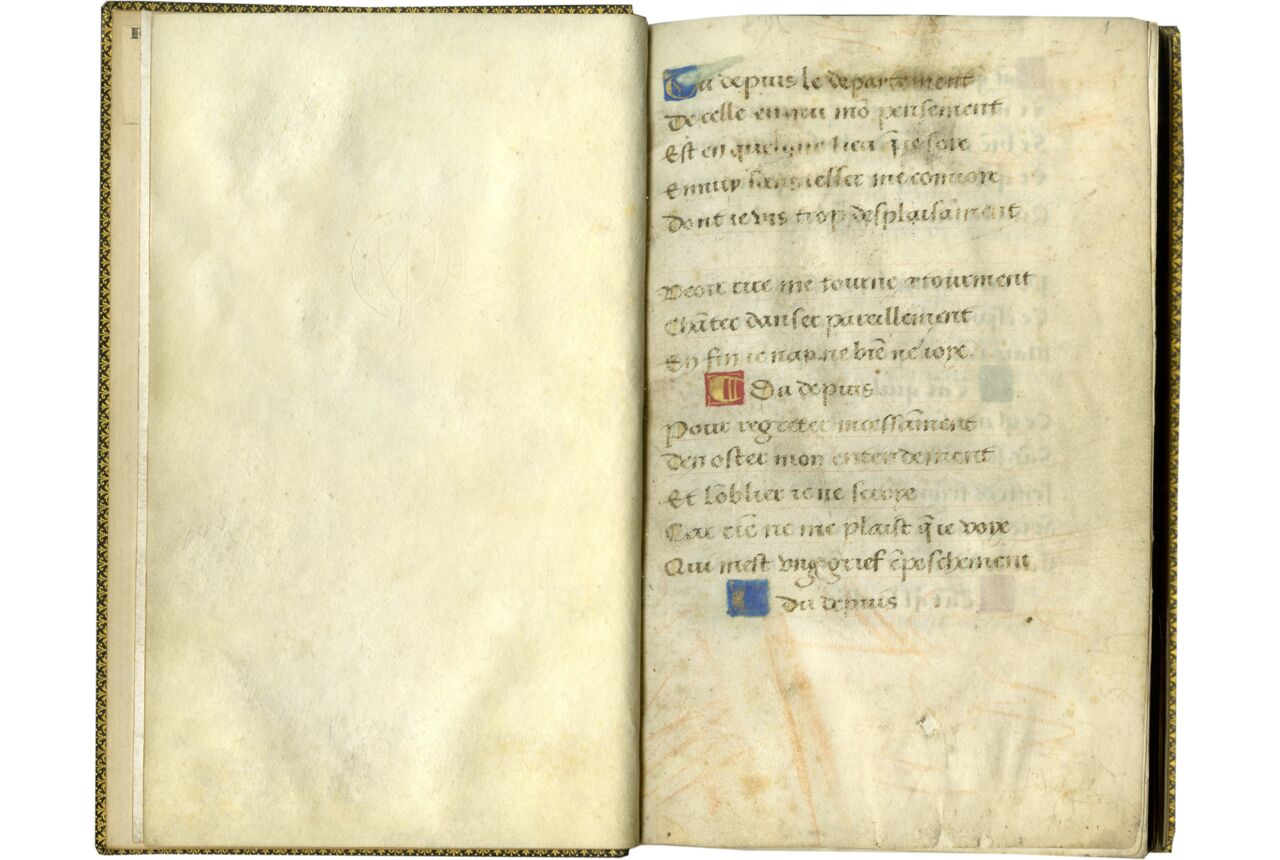 1
Da depuis le departement
De celle en qui mō pensement
Est en quelque lieu q̄ ie soye
Ennuy sans cesser me convoye
Dont ie vis trop desplaisāment
Veoir rire me tourne a tourment
Chāter danser pareillement
En fin ie nay ne bīe ne ioye
Da depuis
Pour regreter incessāment
Den oster mon entendement
Et lōblier ie ne scroye
Car rīe ne me plaist q̄ ie voye
Qui mest vng grief ēpeschement
Da depuis